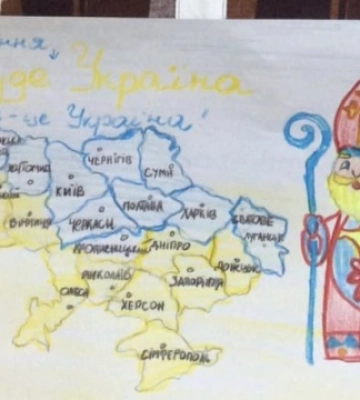 ння,
уде Україна
- це Україна!
ЧЕРНІГІВ
СУМИ
ЖИТОМИР
КИЇВ
ПОЛТАВА
ХАРКІВ
СВАТОВЕ
ЛУГАНСЬК
ВІННИЦЯ
ЧЕРКАСИ
КРОПИВНИЦЬКИЙ
ДНІПРО
ДОНЕЦЬК
МИКОЛАЇВ
ЗАПОРІЖЖЯ
ОДЕСА
ХЕРСОН
СІМФЕРОПОЛЬ